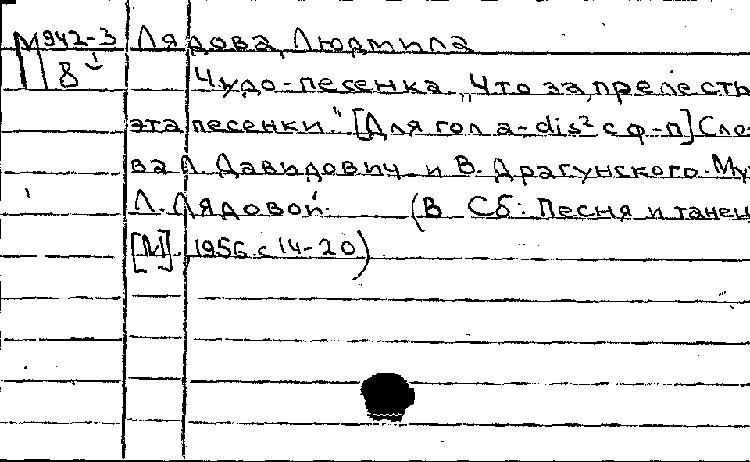 М942-3 Лядова, Людмила
8 Чудо-песенка „Что за прелесть
эта песенки." [Для гол a-dis² с ф-п] Сло-
ва Л. Давидович и В. Драгунского. Му
Л. Лядовой. (В Сб: Песня и танец
[М]. 1956 с 14-20)